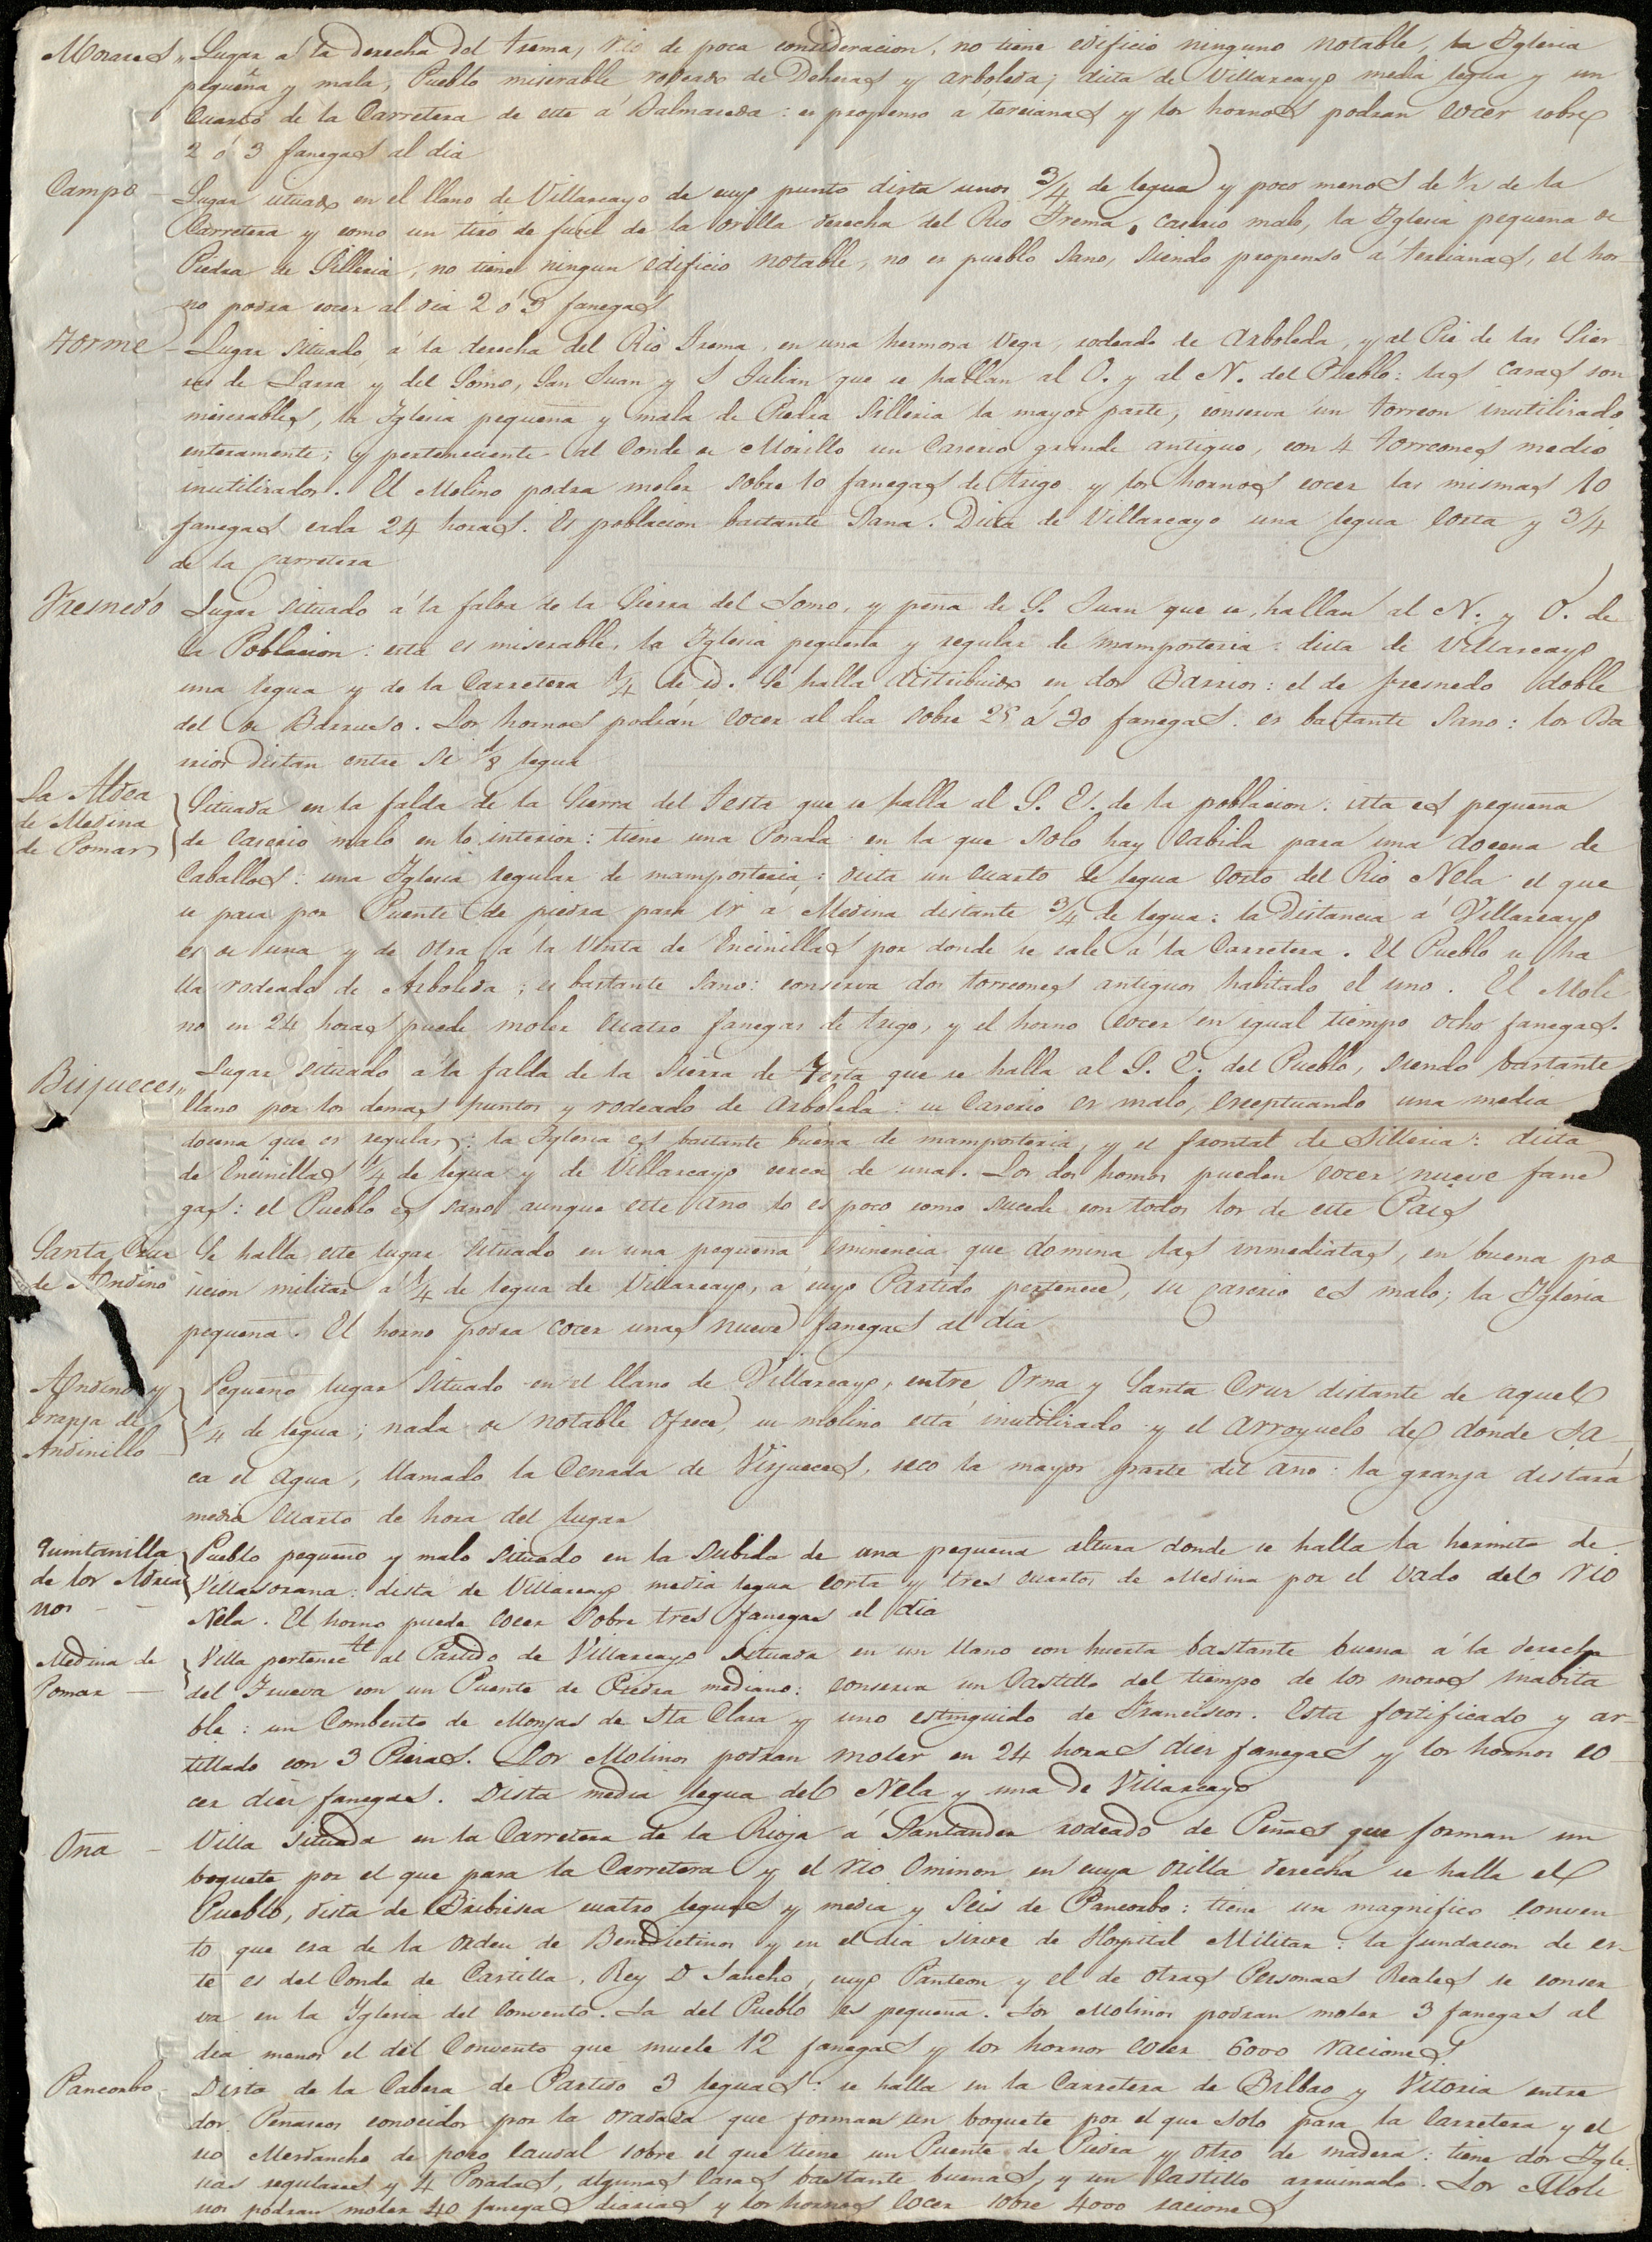 Moraes „ Lugar á la derecha del trema, rio de poca consideracion, no tiene edificio ninguno notable, la Iglesia
pequeña y mala, Pueblo miserable, rodeado de Dehesas y arboleda; dista de Villarcayo media legua y un
Cuarto de la Carretera de este á Balmaseda: es propenso a tercianas y los hornos podran cocer sobre
2 ó 3 fanegas al dia
Campo — Lugar situado en el llano de Villarcayo de cuyo punto dista unos 3/4 de legua y poco menos de 1/2 de la
Carretera y como un tiro de fusil de la orilla derecha del Rio Trema, caserio malo, la Iglesia pequeña de
Piedra de Silleria, no tiene ningun edificio notable, no es pueblo sano, siendo propenso á tercianas, el hor-
no podra cocer al dia 2 ó 3 fanegas
Torme — Lugar situado á la derecha del Rio Trema, en una hermosa Vega, rodeado de Arboleda, y al Pie de las Sier-
ras de Larra y del Somo, San Juan y S. Julian que se hallan al O. y al N. del Pueblo: las casas son
miserables, la Iglesia pequeña y mala de Piedra Silleria la mayor parte, conserva un torreon inutilizado
enteramente; y perteneciente al Conde de Morillo un Caserio grande antiguo, con 4 torreones medio
inutilizados. El Molino podra moler sobre 10 fanegas de trigo y los hornos cocer las mismas 10
fanegas cada 24 horas. Es poblacion bastante sana. Dista de Villarcayo una legua corta y 3/4
de la carretera
Fresnedo Lugar situado á la falda de la Sierra del Somo, y peña de S. Juan que se hallan al N. y O. de
la Poblacion: esta es miserable, la Iglesia pequeña y regular de mamposteria: dista de Villarcayo
una legua y de la Carretera 1/4 de id. Se halla distribuido en dos Barrios: el de fresnedo doble
del de Barruso. Los hornos podrán cocer al dia sobre 25 á 30 fanegas. es bastante sano: los Ba
rrios distan entre si 1/8 legua
La Aldea
de Medina
de Pomar
Situada en la falda de la Sierra del Testa que se halla al S. E. de la poblacion: esta es pequeña
de caserio malo en lo interior: tiene una Posada en la que solo hay cabida para una docena de
Caballos: una Iglesia regular de mamposteria: dista un cuarto de legua corto del Rio Nela el que
se pasa por Puente de piedra para ir á Medina distante 3/4 de legua: la distancia á Villarcayo
es de una y de otra á la Venta de Encinillas por donde se sale á la Carretera. El Pueblo se ha
lla rodeado de Arboleda; es bastante sano: conserva dos torreones antiguos habitado el uno. El Moli
no en 24 horas puede moler cuatro fanegas de trigo, y el horno cocer en igual tiempo ocho fanegas.
Bisjueces „ Lugar situado á la falda de la Sierra de Testa que se halla al S. E. del Pueblo, siendo bastante
llano por los demas puntos y rodeado de arboleda: su Caserio es malo, exceptuando una media
docena que es regular: la Iglesia es bastante buena de mamposteria, y el frontal de Silleria: dista
de Encinillas 1/4 de legua y de Villarcayo cerca de una. Los dos hornos pueden cocer nueve fane
gas: el Pueblo es sano aunque este año lo es poco como sucede con todos los de este Pais
Santa Cruz
de Andino
Se halla este lugar situado en una pequeña eminencia que domina las inmediatas, en buena po
sicion militar á 1/4 de legua de Villarcayo, á cuyo Partido pertenece, su caserio es malo; la Iglesia
pequeña. El horno podra cocer unas nueve fanegas al dia
Andino y
Granja de
Andinillo
Pequeño lugar situado en el llano de Villarcayo, entre Orna y Santa Cruz distante de aquel
1/4 de legua; nada de notable ofrece, su molino está inutilizado y el arroyuelo de donde sa-
ca el agua, llamado la Cenada de Visjueces, seco la mayor parte del año: la granja distará
medio cuarto de hora del lugar
Quintanilla
de los Adria
nos — —
Pueblo pequeño y malo situado en la subida de una pequeña altura donde se halla la hermita de
Villasorana: dista de Villarcayo media legua corta y tres cuartos de Medina por el vado del rio
Nela. El horno puede cocer sobre tres fanegas al dia
Medina de
Pomar —
Villa pertenecte al Partido de Villarcayo situada en un llano con huerta bastante buena á la derecha
del Trueva con un Puente de Piedra mediano: conserva un Castillo del tiempo de los moros inabita
ble: un Combento de Monjas de Sta Clara y uno estinguido de Franciscos. Esta fortificado y ar-
tillado con 3 Piezas. Los Molinos podran moler en 24 horas diez fanegas y los hornos co
cer diez fanegas. Dista media legua del Nela y una de Villarcayo
Oña — Villa situada en la Carretera de la Rioja á Santander rodeado de Peñas que forman un
boquete por el que pasa la Carretera y el rio Ominon en cuya orilla derecha se halla el
Pueblo, dista de Bribiesca cuatro leguas y media y seis de Pancorbo: tiene un magnifico conven
to que era de la orden de Benedictinos y en el dia sirve de Hospital Militar: la fundacion de es-
te es del Conde de Castilla, Rey D Sancho, cuyo Panteon y el de otras Personas Reales se conser
va en la Iglesia del Convento. La del Pueblo es pequeña. Los Molinos podran moler 3 fanegas al
dia menos el del Convento que muele 12 fanegas y los hornos cocer 6000 raciones
Pancorbo — Dista de la Cabeza de Partido 3 leguas: se halla en la Carretera de Bilbao y Vitoria entre
dos Peñascos conocidos por la oradada que forman un boquete por el que solo pasa la Carretera y el
rio Merdancho de poco caudal sobre el que tiene un Puente de Piedra y otro de madera: tiene dos Igle
sias regulares y 4 Posadas, algunas casas bastante buenas, y un Castillo arruinado. Los Moli
nos podran moler 40 fanegas diarias y los hornos cocer sobre 4000 raciones